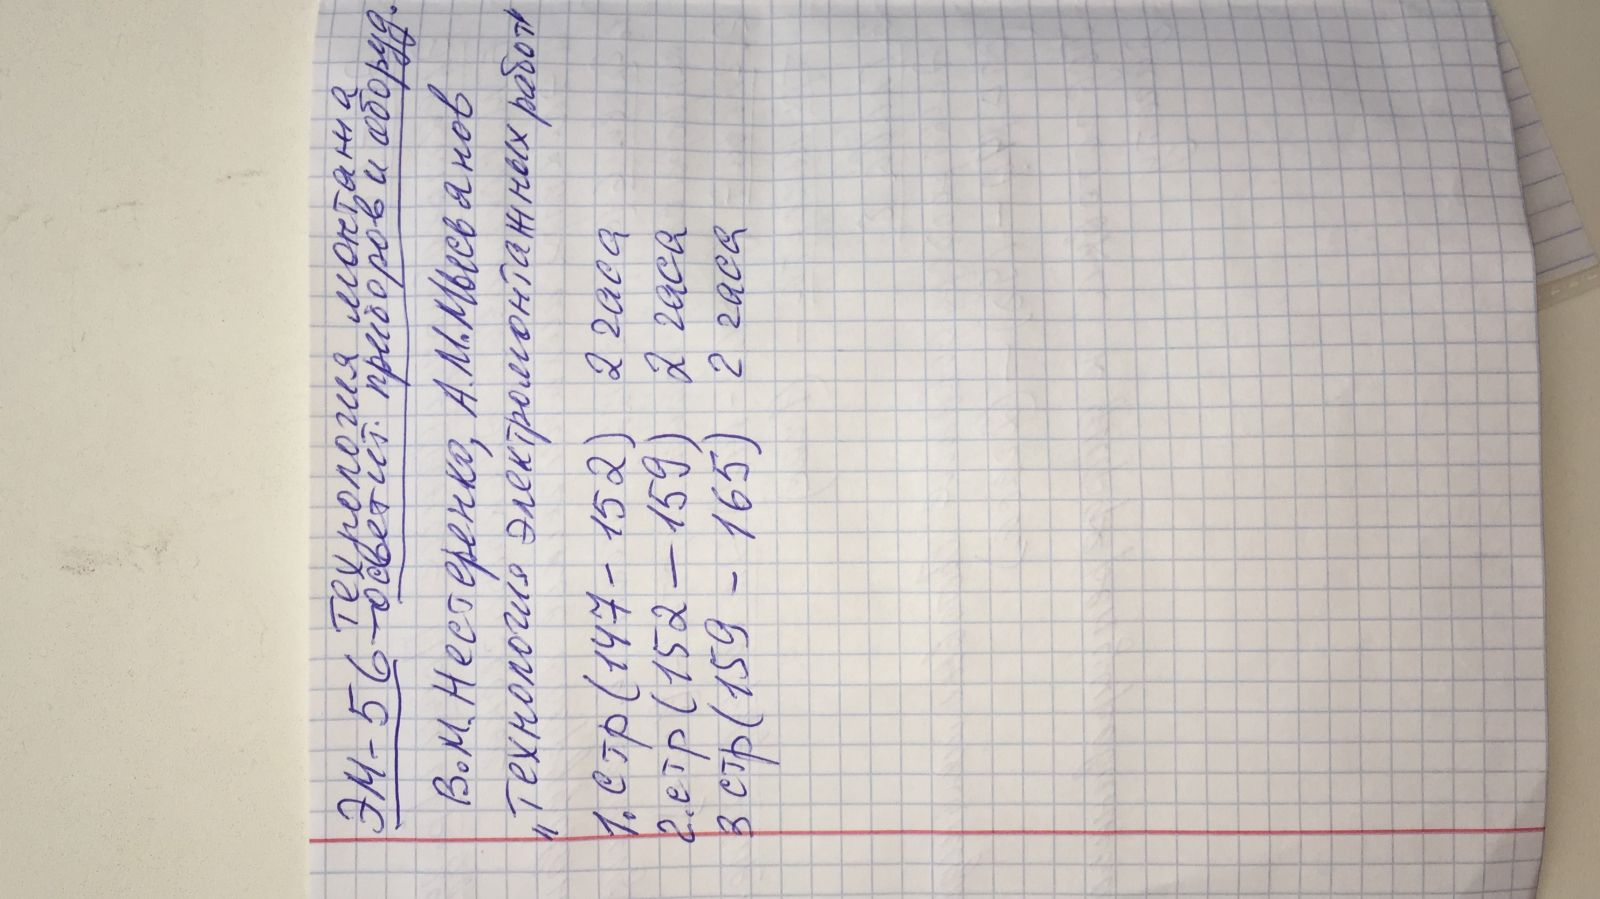 ЭМ-56 - Технология монтажа
осветит. приборов и оборуд.
В.М. Нестеренко, А.М. Мысьянов
"Технология электромонтажных работ"
1. стр (147 - 152) 2 часа
2. стр (152 - 159) 2 часа
3 стр (159 - 165) 2 часа